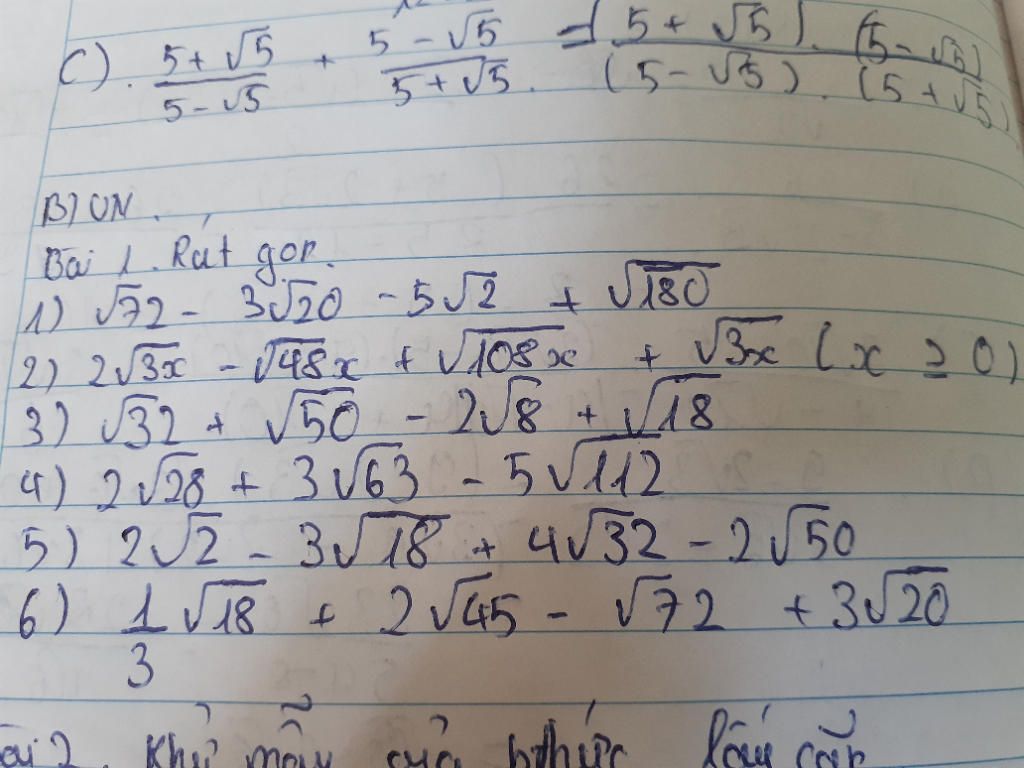 C). \frac{5+√5}{5-√5} + \frac{5-√5}{5+√5}. = \frac{(5+√5).(5-√5)}{(5-√5).(5+√5)}
B) VN.
Bài 1. Rút gọn.
1) √72 - 3√20 - 5√2 + √180
2) 2√3x - √48x + √108x + √3x (x ≥ 0)
3) √32 + √50 - 2√8 + √18
4) 2√28 + 3√63 - 5√112
5) 2√2 - 3√18 + 4√32 - 2√50
6) \frac{1}{3}√18 + 2√45 - √72 + 3√20
ài 2. Khử mẫu của bthức lấy căn